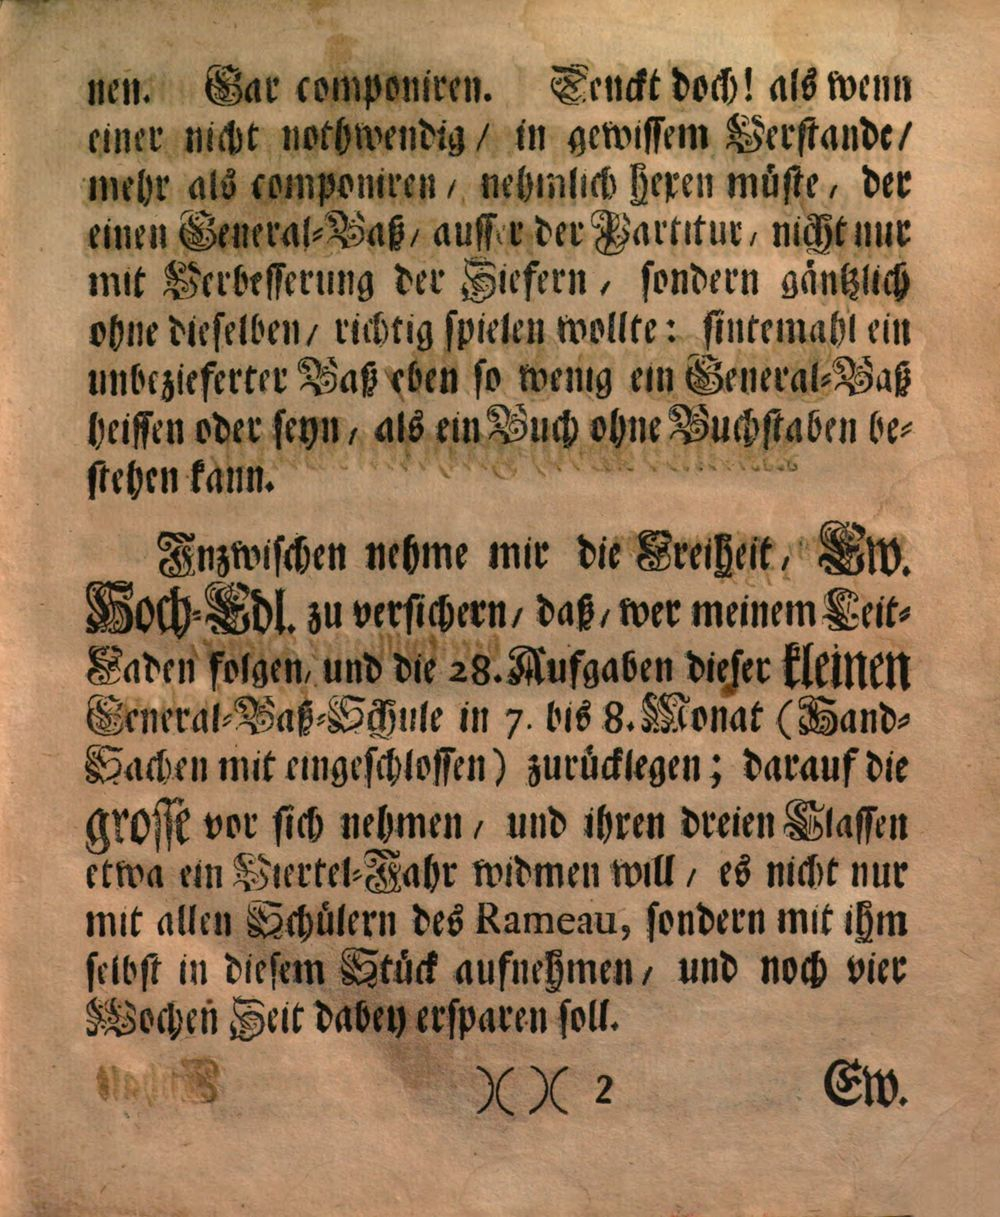 nen. Gar componiren. Denckt doch! als wenn
einer nicht nothwendig / in gewissem Verstande /
mehr als componiren / nehmlich hexen müste / der
einen General-Baß / ausser der Partitur / nicht nur
mit Verbesserung der Ziefern / sondern gäntzlich
ohne dieselben / richtig spielen wollte: sintemahl ein
unbezieferter Baß eben so wenig ein General-Baß
heissen oder seyn / als ein Buch ohne Buchstaben be-
stehen kann.
Inzwischen nehme mir die Freiheit / Ew.
Hoch-Edl. zu versichern / daß / wer meinem Leit-
Faden folgen / und die 28. Aufgaben dieser kleinen
General-Baß-Schule in 7. bis 8. Monat (Hand-
Sachen mit eingeschlossen) zurücklegen; darauf die
grosse vor sich nehmen / und ihren dreien Classen
etwa ein Viertel-Jahr widmen will / es nicht nur
mit allen Schülern des Rameau, sondern mit ihm
selbst in diesem Stück aufnehmen / und noch vier
Wochen Zeit dabey ersparen soll.
)( )( 2 Ew.